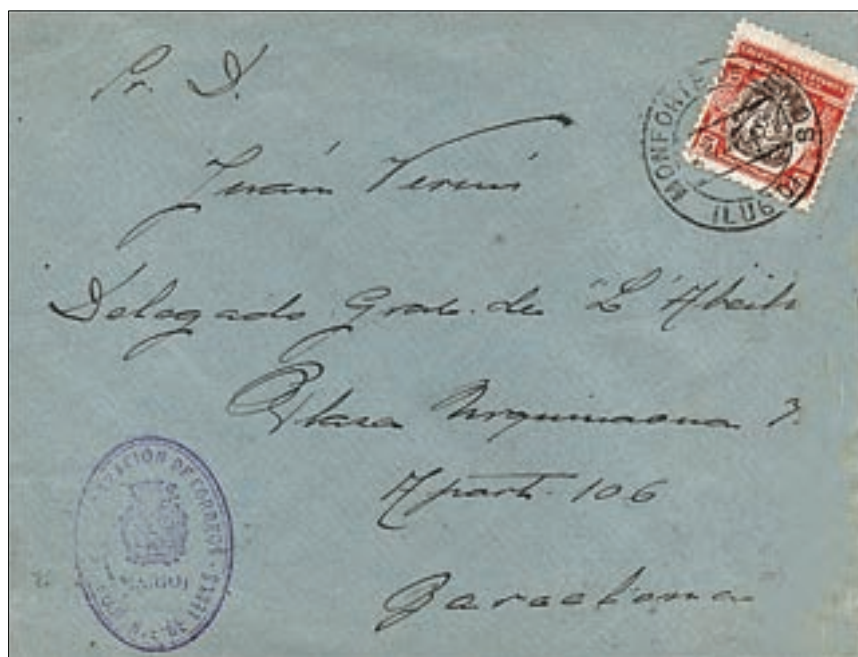 Sr. D.
Juán Vernis
Delegado Gral. de "L'Abeille
Plaza Urquinaona 7.
Apart. 106
Barcelona
MONFORTE LEMOS
(LUGO)
DE CORREOS
DE LEMOS
(LUGO)